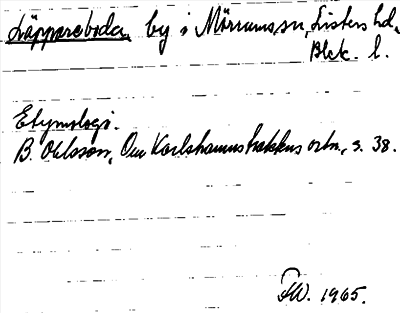 Läppareboda by i Mörrums sn, Listers hd,
Blek. l.
Etymologi.
B. Ohlsson, Om Karlshamnstraktens ortn., s. 38.
1965.